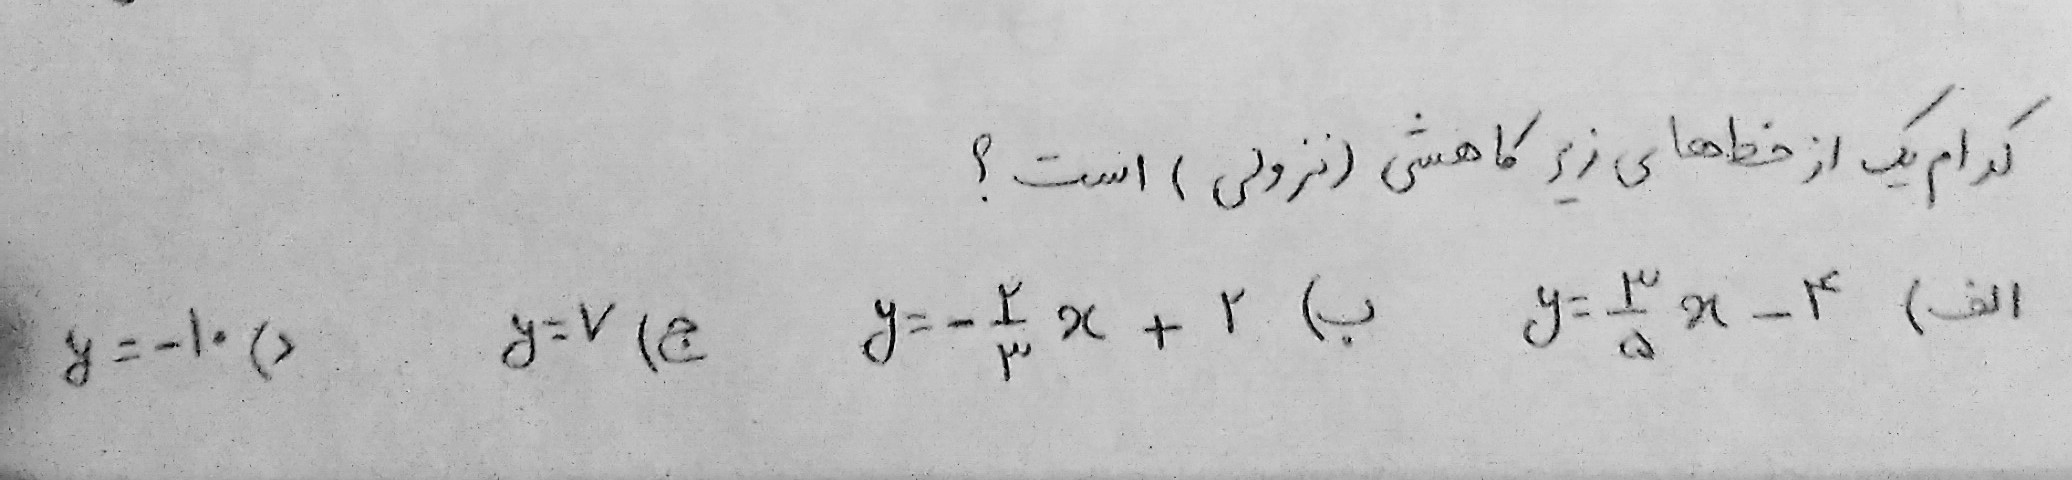 کدام یک از خط‌های زیر کاهشی (نزولی) است؟
الف) y = ۳/۵ x − ۴ ب) y = −۲/۳ x + ۲ ج) y = ۷ د) y = −۱۰